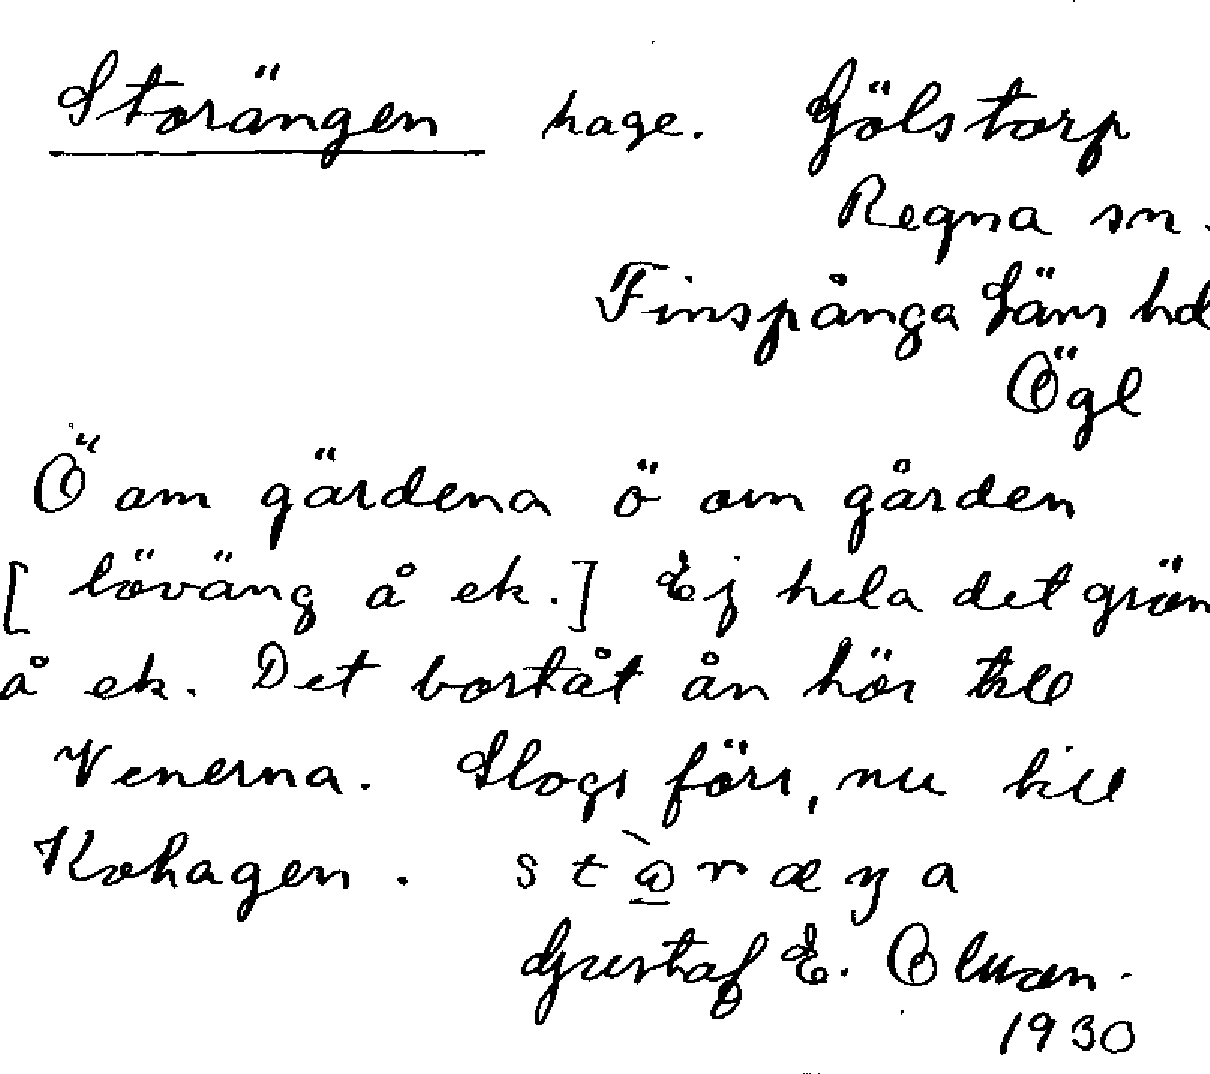 Storängen hage. Gölstorp
Regna sn.
Finspånga läns hd
Ögl
Ö om gärdena ö om gården
[ löväng å ek.] Ej hela det grön
å ek. Det bortåt ån hör till
Venerna. Slogs förr, nu till
Kohagen.
Gustaf E. Olsson.
1930